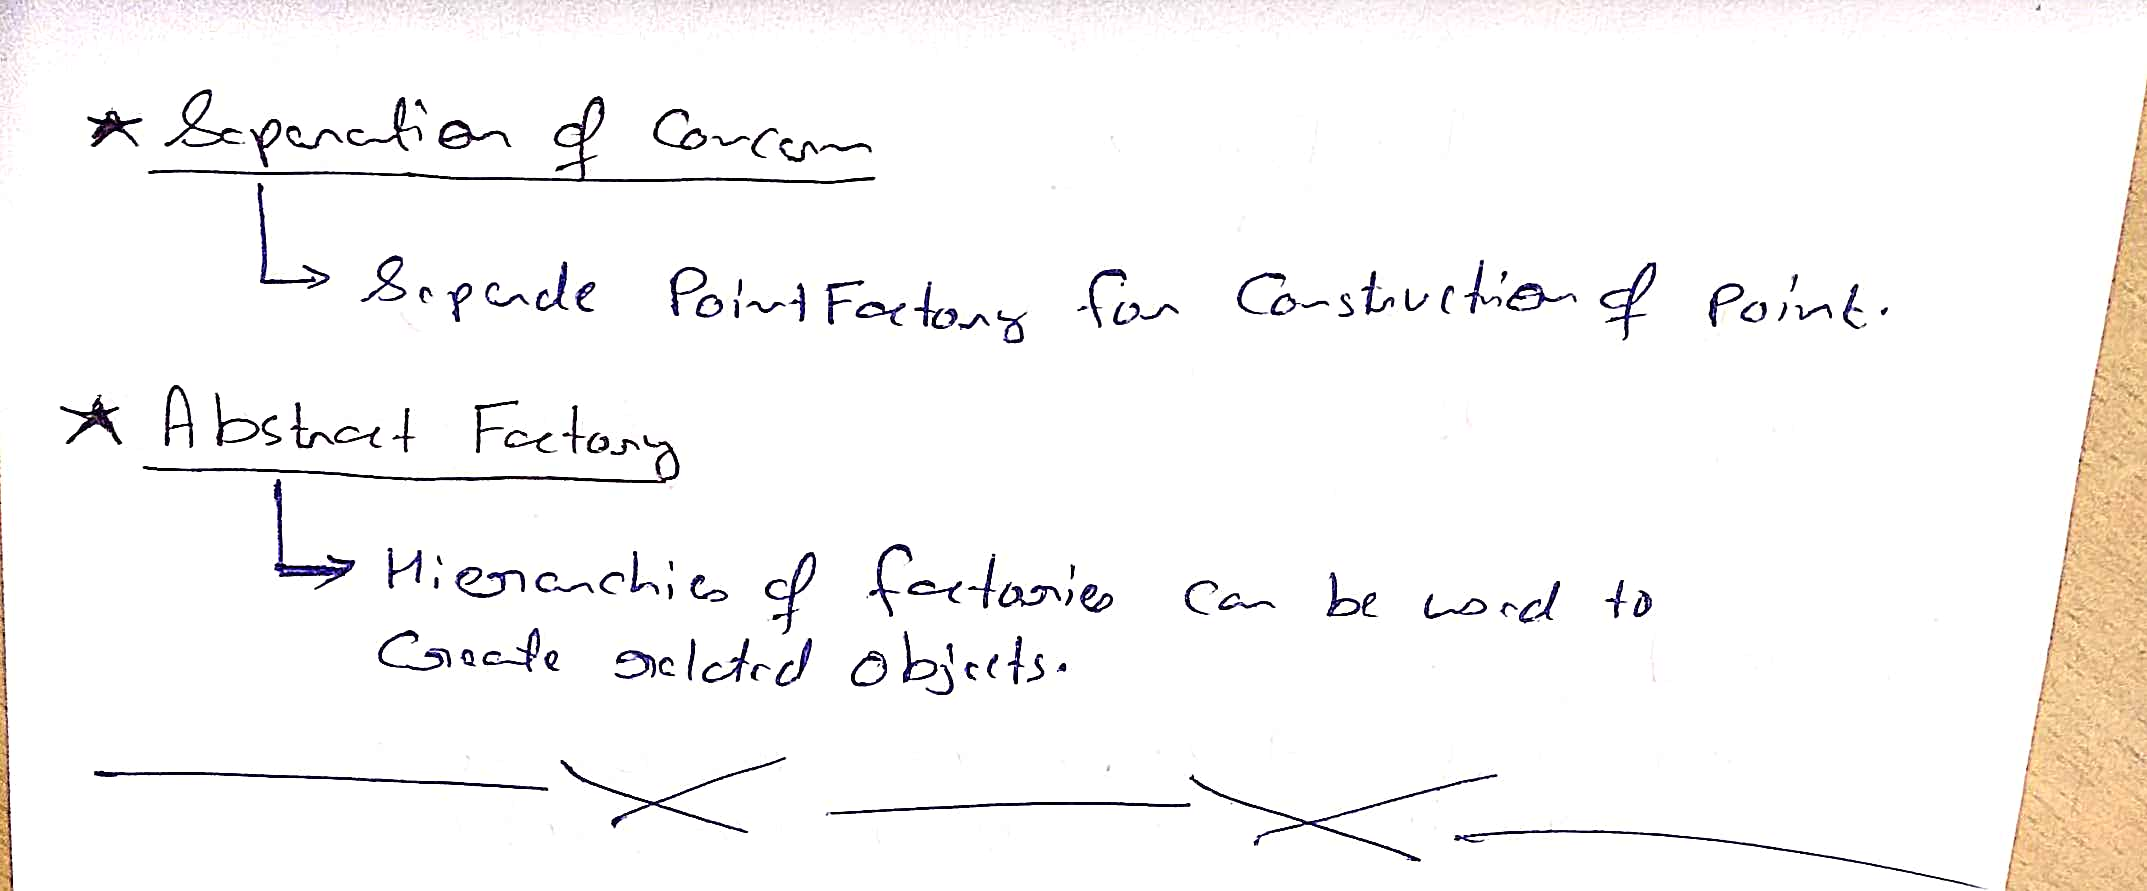 ★ Separation of Concern
↳ Separate PointFactory for Construction of Point.
★ Abstract Factory
↳ Hierarchies of factories can be used to
Create related objects.